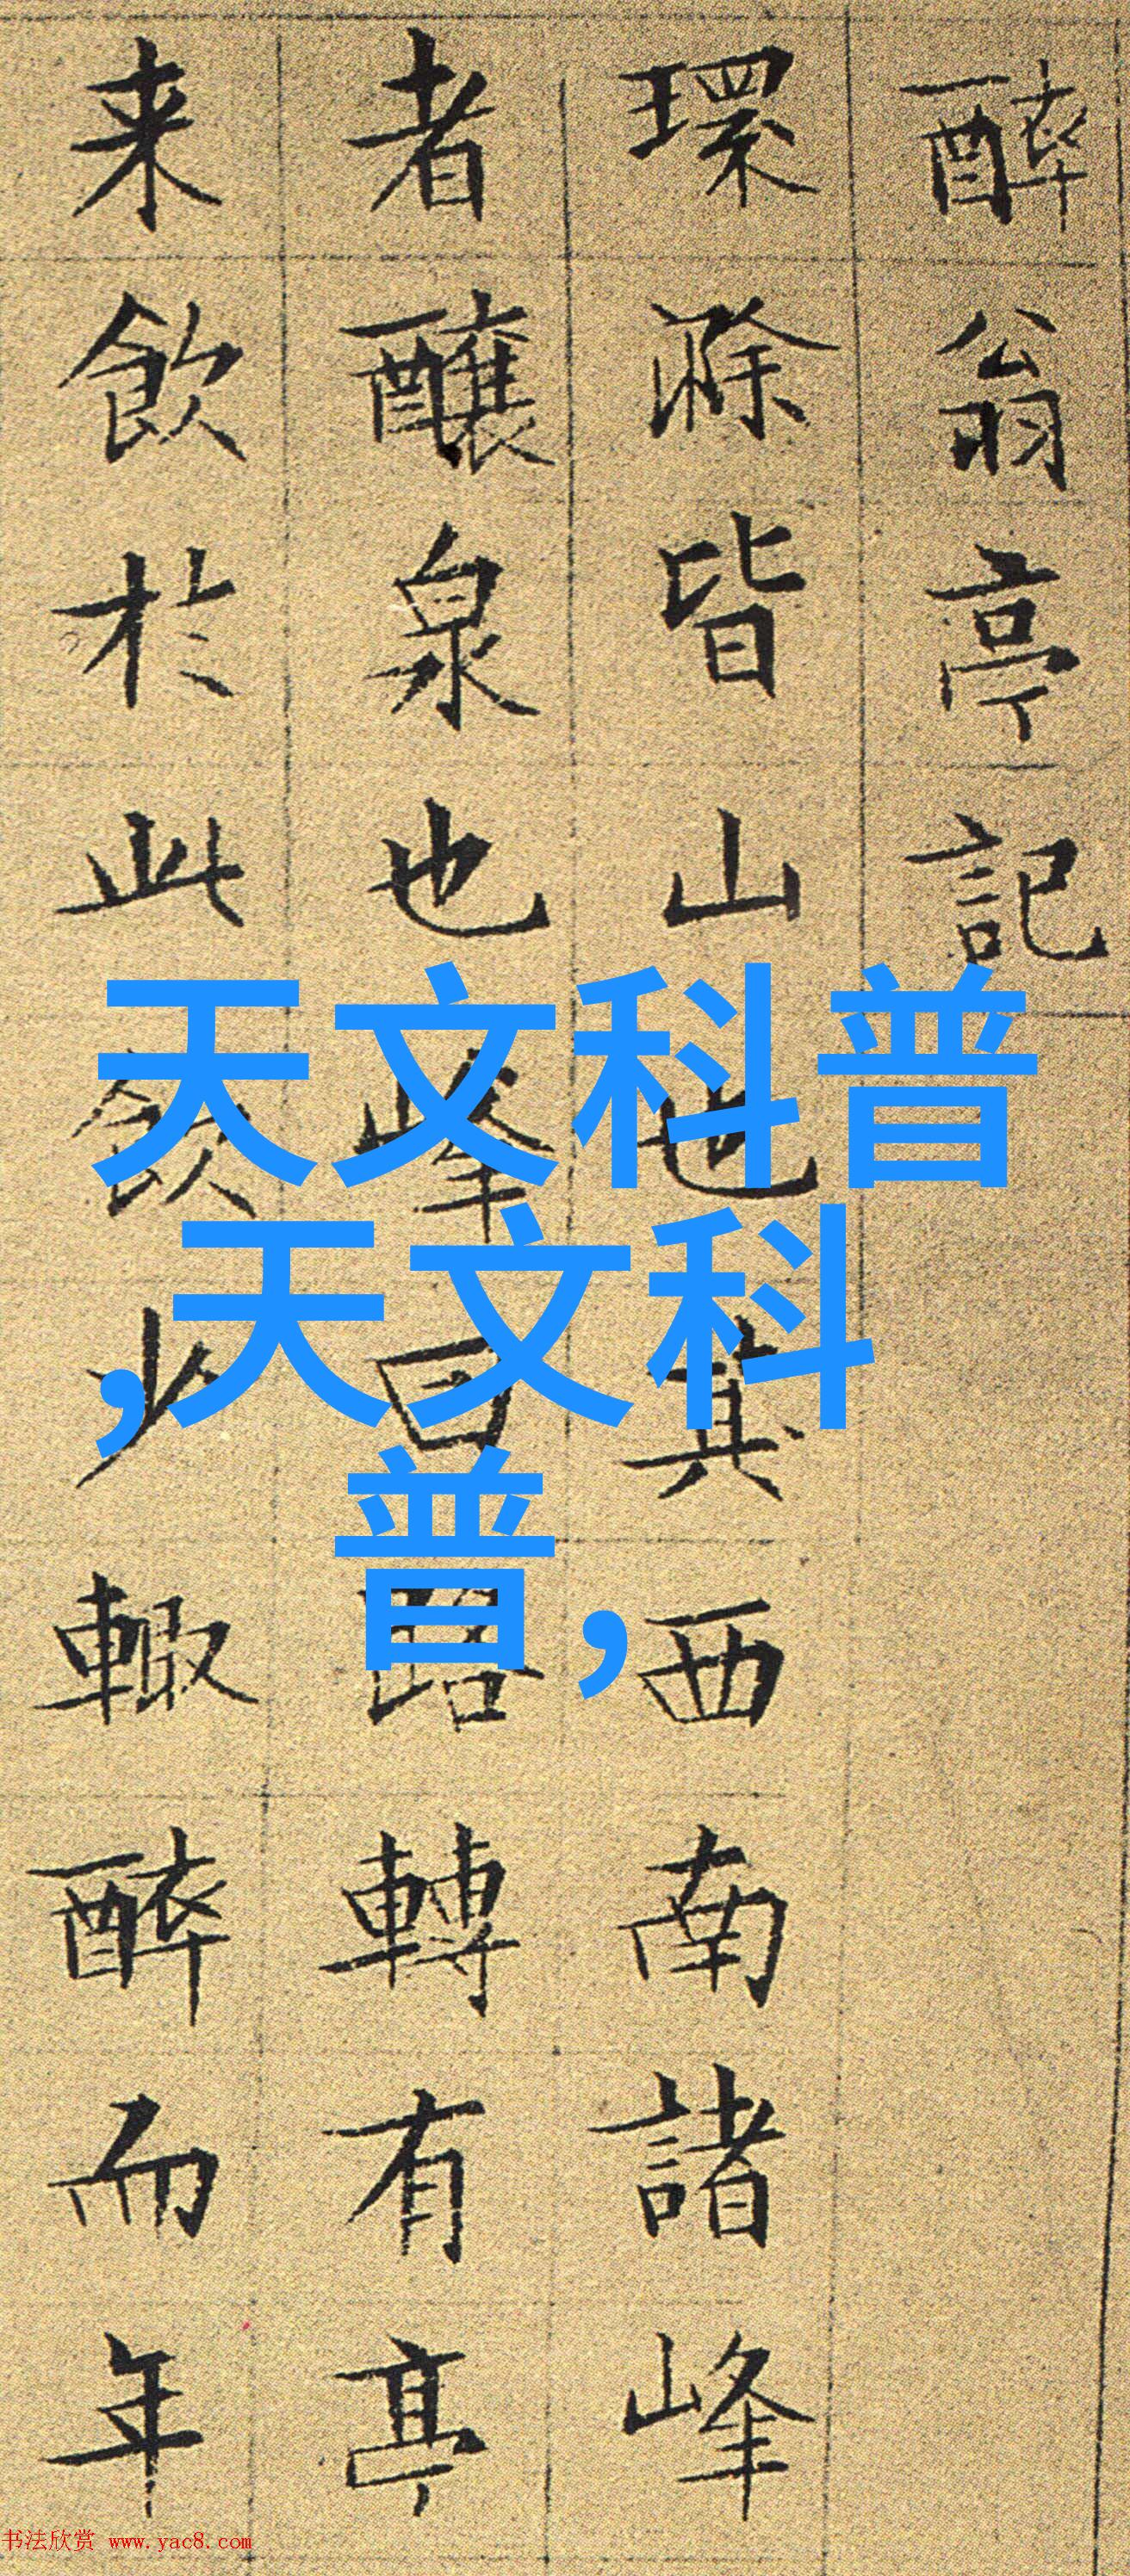 醉翁亭記
環滁皆山也其西南諸峰
者釀泉也峰回路轉有亭
来飲於此飲少輒醉而年
天文科普
,天文科
普,
书法欣赏 www.yac8.com